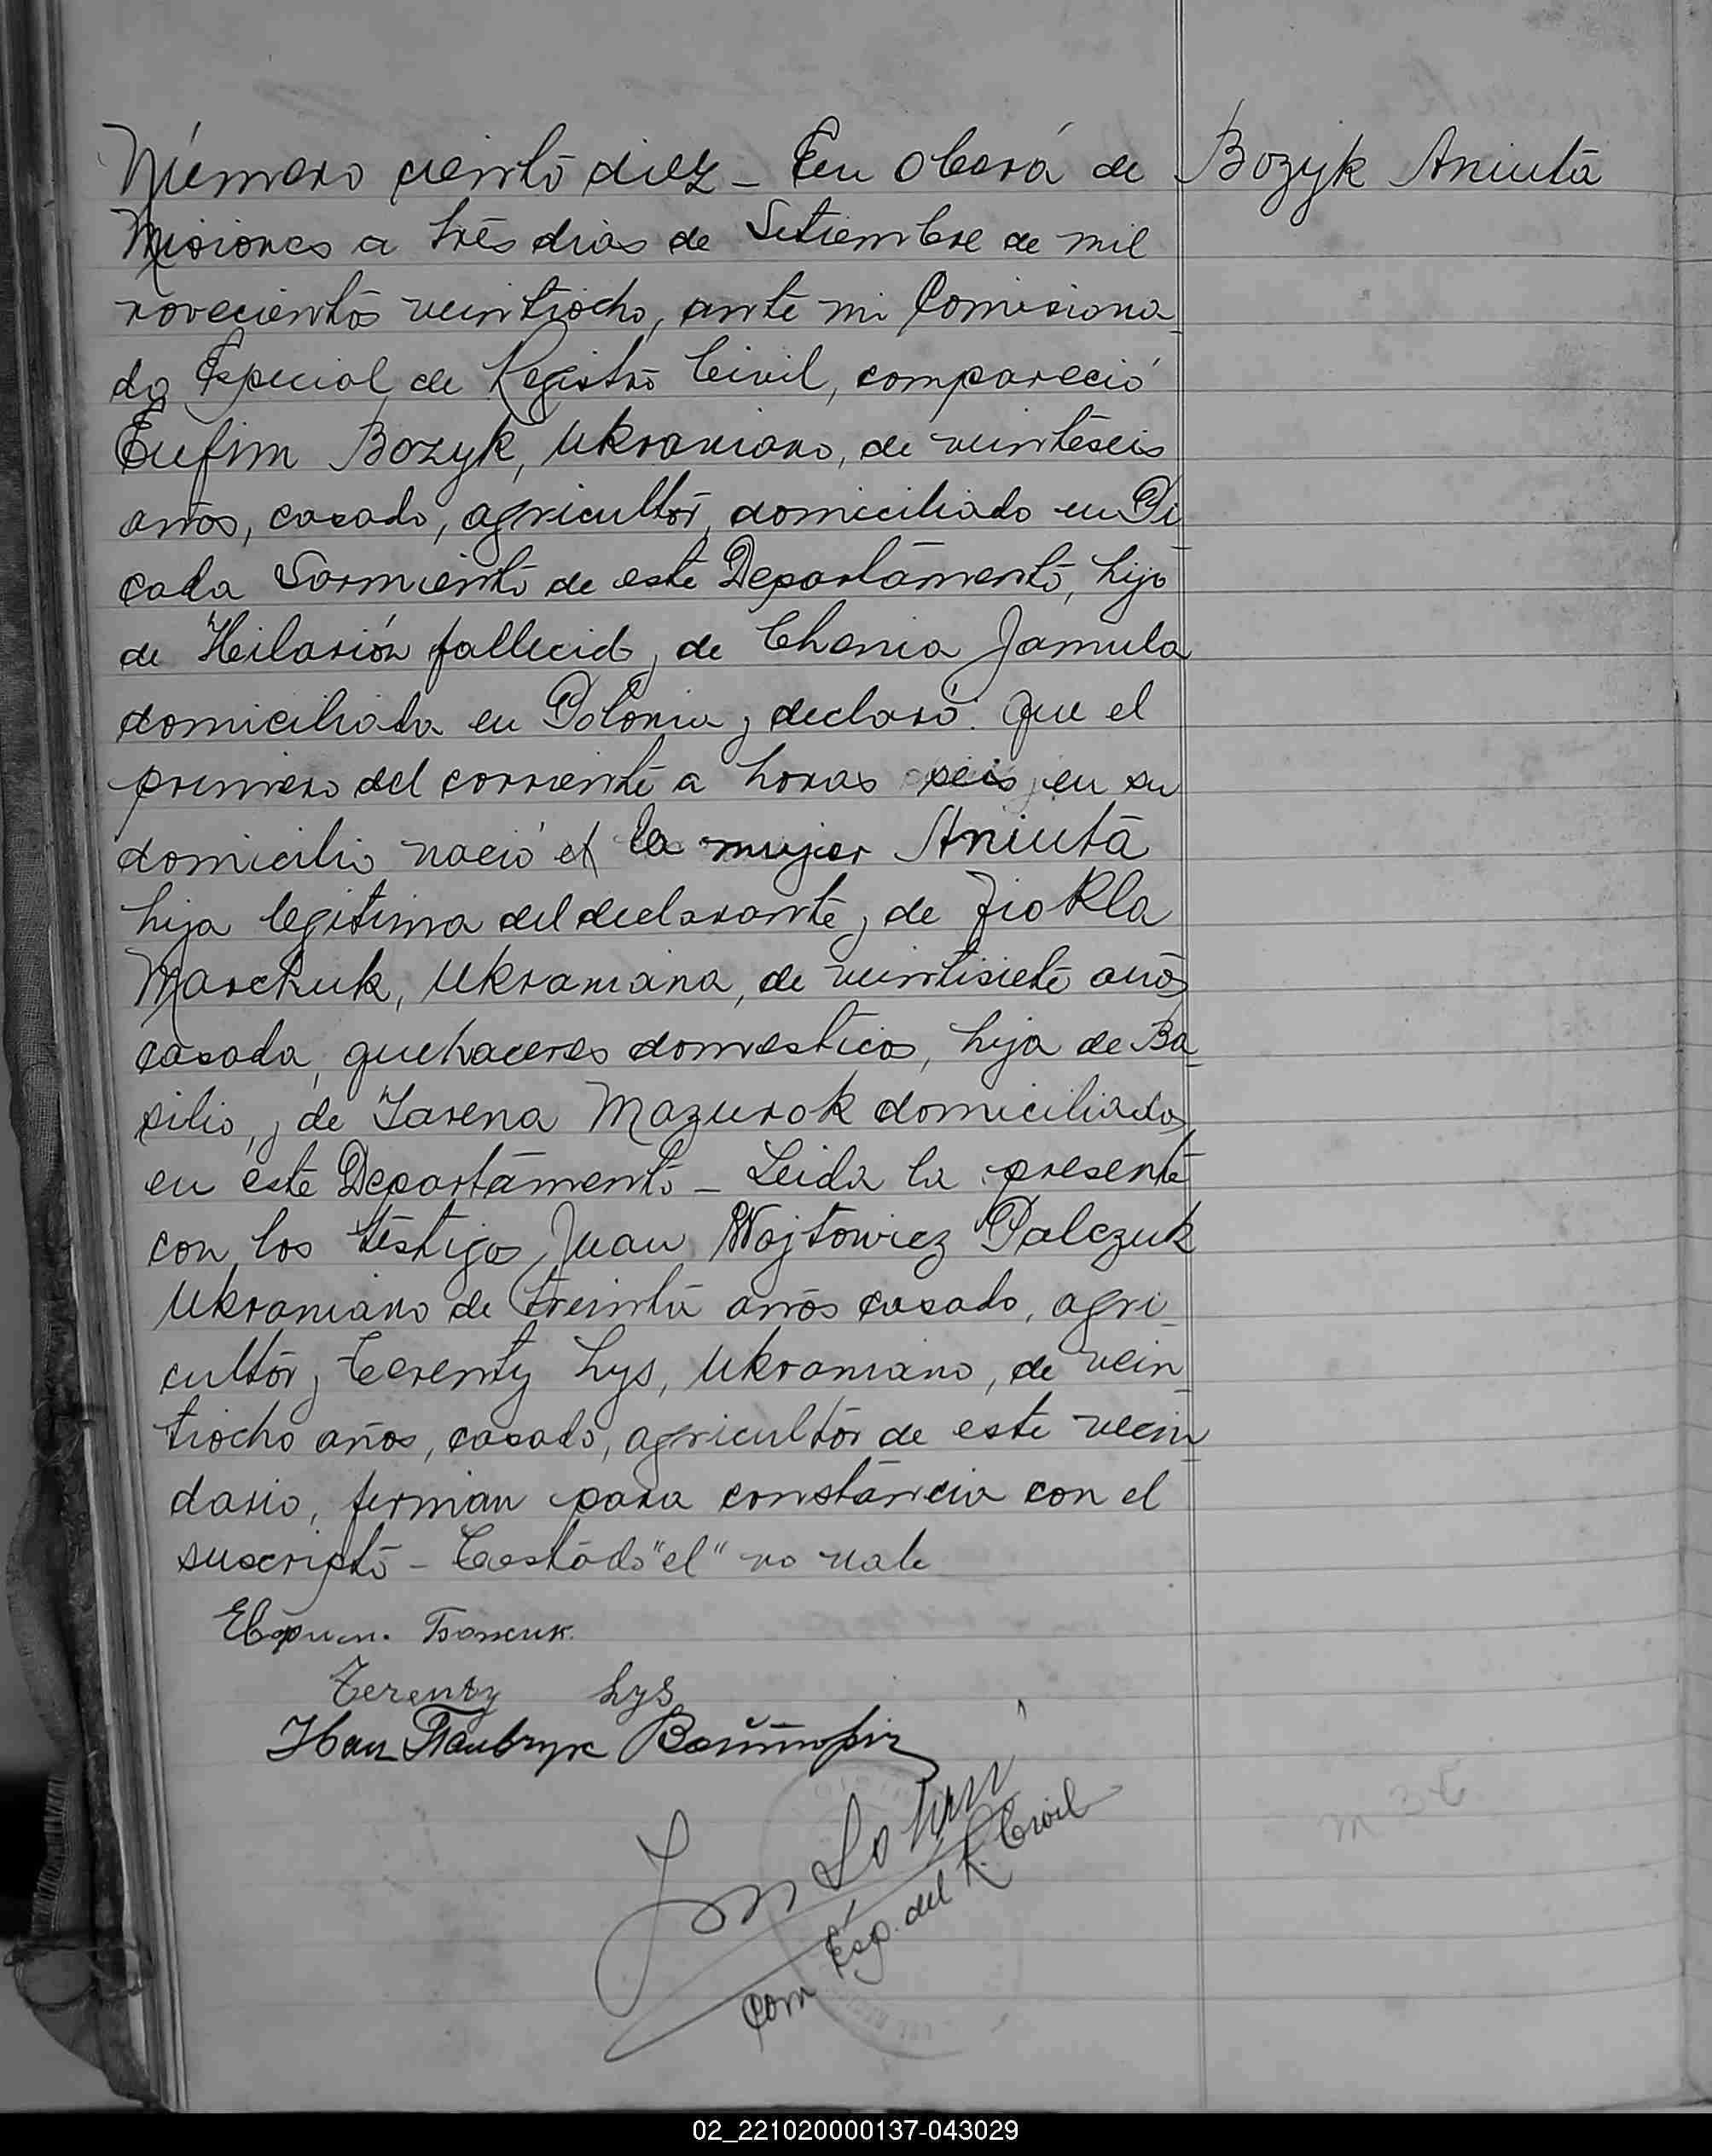 Número ciento diez - En Oberá de
Bozyk Aniuta
Misiones a tres dias de Setiembre de mil
novecientos veintiocho, ante mi Comisiona_
do Especial de Registro Civil, compareció
Eufim Bozyk, Ukraniano, de veinteseis
años, casado, agricultor, domiciliado en Pi_
cada Sarmiento de este Departamento, hijo
de Hilarión fallecido y de Chenia Jamula
domiciliada en Polonia y declaró: Que el
primero del corriente a horas seis en su
domicilio nació el la mujer Aniuta
hija legitima del declarante y de Fiokla
Marchuk, Ukraniana, de veintisiete años
casada, quehaceres domesticos, hija de Ba_
silio, y de Jarena Mazurok domiciliados
en este Departamento - Leida la presente
con los testigos Juan Wojtowicz Palczuk
Ukraniano de treinta años casado, agri_
cultor y Terenty Lys, Ukraniano, de vein_
tiocho años, casado, agricultor de este vecin_
dario, firman para constancia con el
suscripto - Testado "el" no vale
Евфим. Божик.
Terenty Lys
Иван Павчук
Com Esp. del R. Civil
02_221020000137-043029